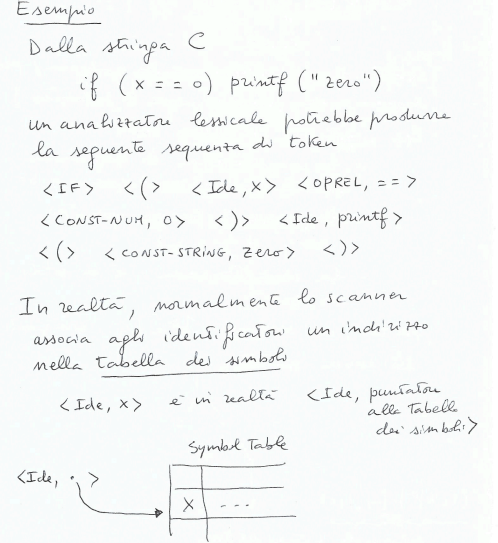 Esempio
Dalla stringa C
if (x == 0) printf ("zero")
un analizzatore lessicale potrebbe produrre
la seguente sequenza di token
<IF> <(> <Ide, x> <OPREL, ==>
<CONST-NUM, 0> <)> <Ide, printf>
<(> <CONST-STRING, zero> <)>
In realtà, normalmente lo scanner
associa agli identificatori un indirizzo
nella tabella dei simboli
<Ide, x> è in realtà <Ide, puntatore
alla Tabella
dei simboli>
Symbol Table
<Ide, · >
X ---